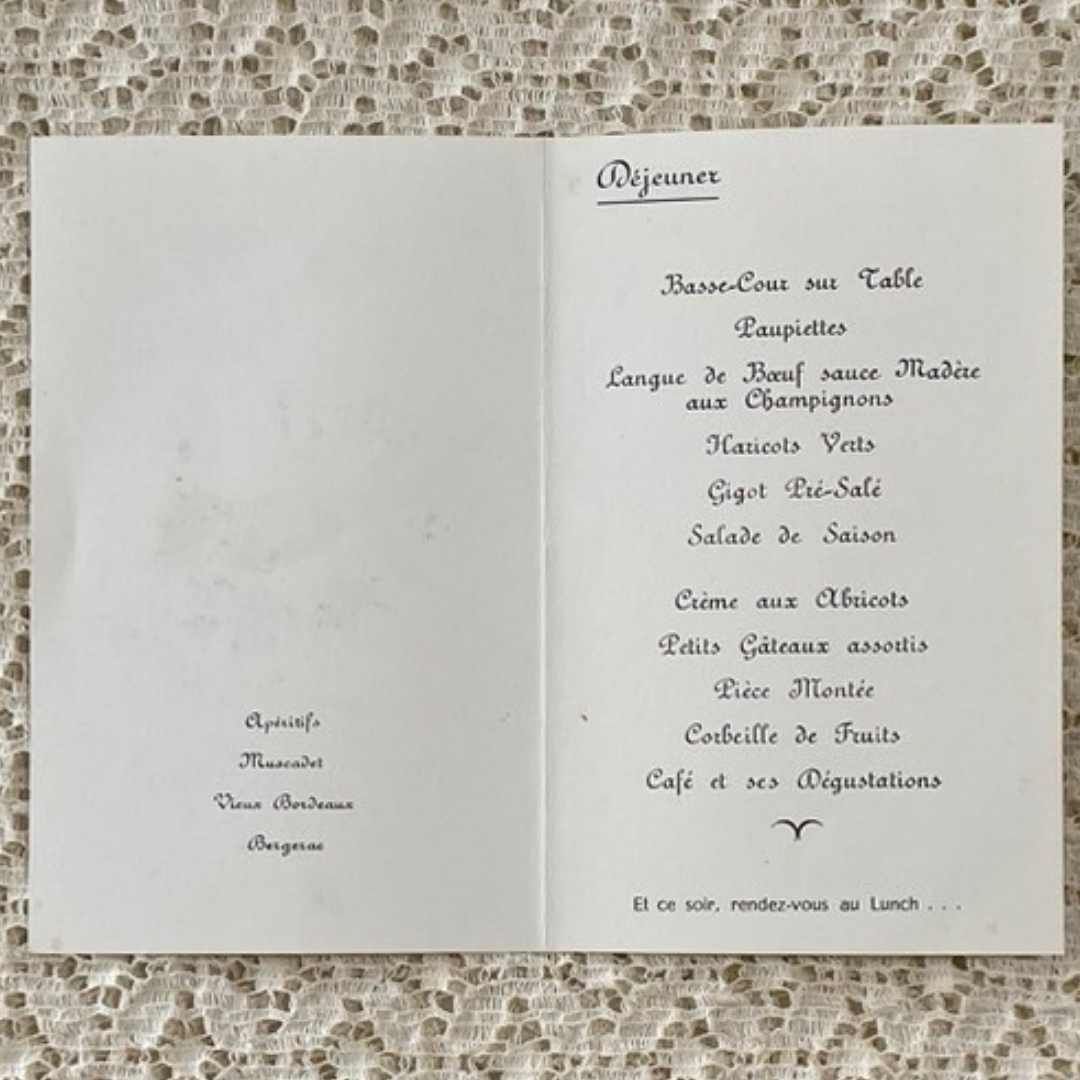 Apéritifs
Muscadet
Vieux Bordeaux
Bergerac
Déjeuner
Basse-Cour sur Table
Paupiettes
Langue de Bœuf sauce Madère
aux Champignons
Haricots Verts
Gigot Pré-Salé
Salade de Saison
Crème aux Abricots
Petits Gâteaux assortis
Pièce Montée
Corbeille de Fruits
Café et ses Dégustations
Et ce soir, rendez-vous au Lunch . . .